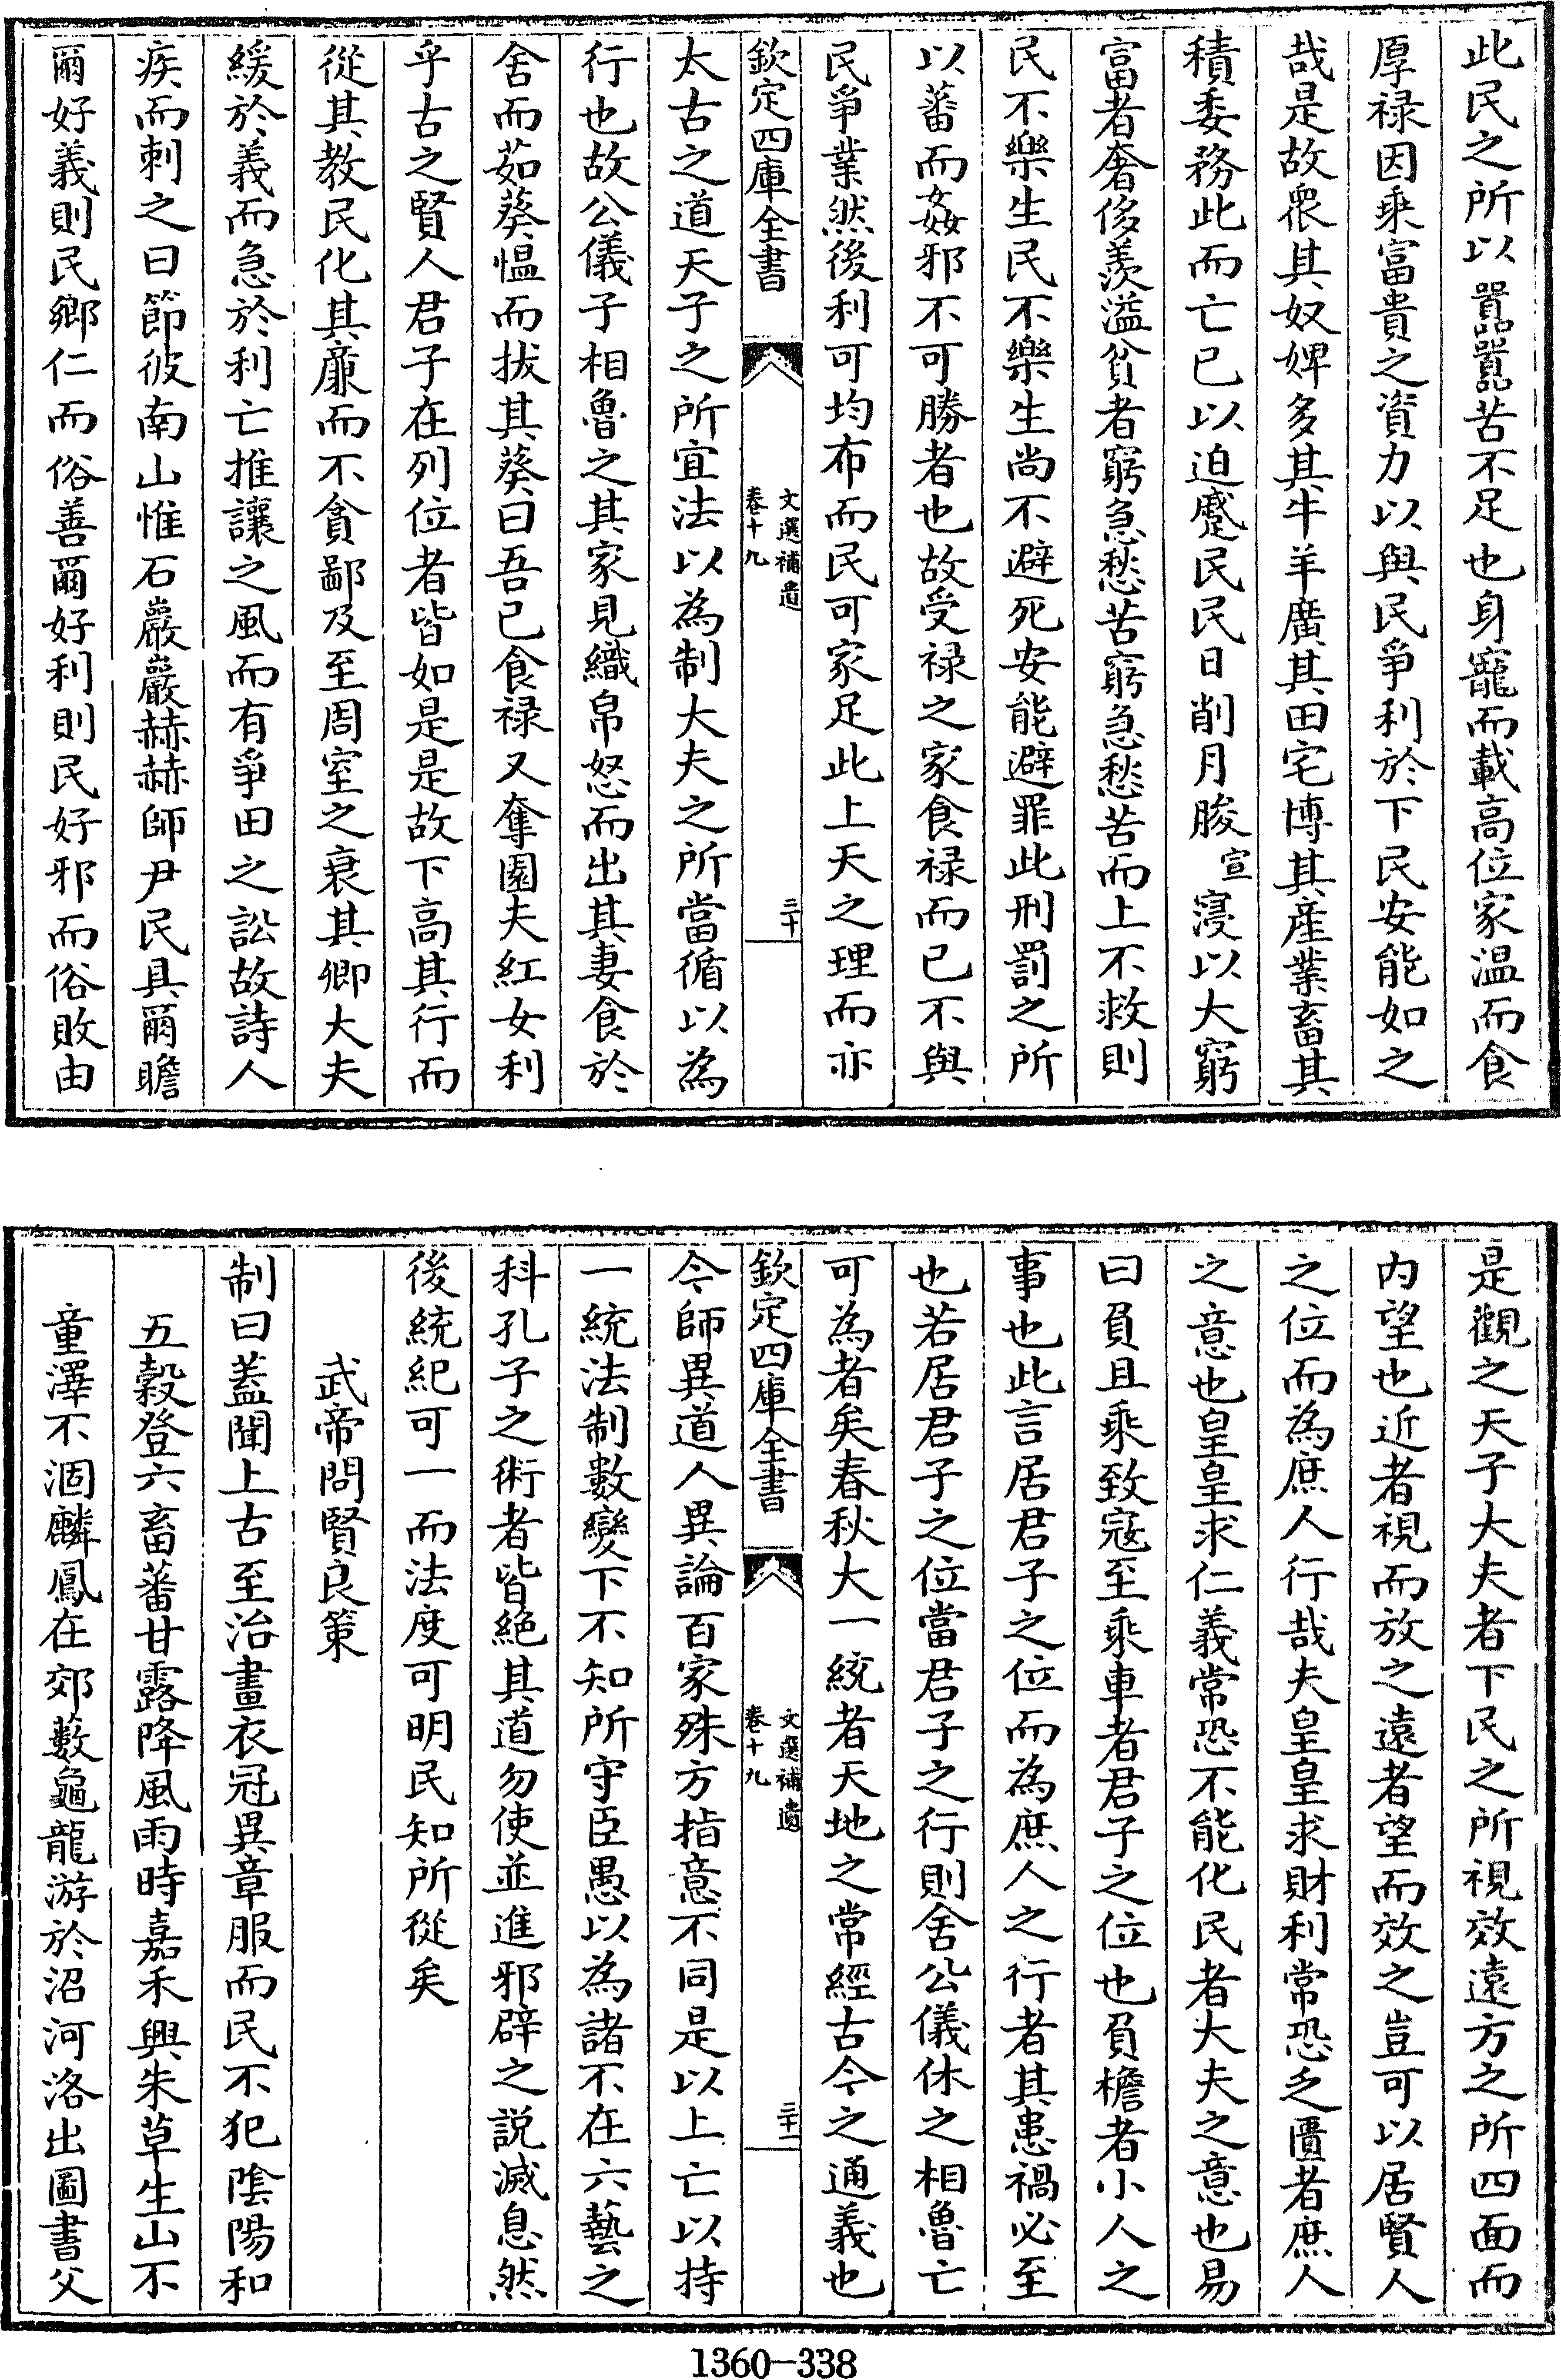 此民之所以囂囂苦不足也身寵而載高位家温而食
厚禄因乘富貴之資力以與民爭利於下民安能如之
哉是故衆其奴婢多其牛羊廣其田宅博其産業畜其
積委務此而亡已以迫蹙民民日削月朘宣寖以大窮
富者奢侈羨溢貧者窮急愁苦窮急愁苦而上不救則
民不樂生民不樂生尚不避死安能避罪此刑罰之所
以蕃而姦邪不可勝者也故受禄之家食禄而已不與
民爭業然後利可均布而民可家足此上天之理而亦
欽定四庫全書
文選補遺
卷十九
三十
太古之道天子之所宜法以為制大夫之所當循以為
行也故公儀子相魯之其家見織帛怒而出其妻食於
舍而茹葵愠而拔其葵曰吾已食禄又奪園夫紅女利
乎古之賢人君子在列位者皆如是是故下高其行而
從其教民化其廉而不貪鄙及至周室之衰其卿大夫
緩於義而急於利亡推讓之風而有爭田之訟故詩人
疾而刺之曰節彼南山惟石巖巖赫赫師尹民具爾瞻
爾好義則民鄉仁而俗善爾好利則民好邪而俗敗由
是觀之天子大夫者下民之所視效遠方之所四面而
内望也近者視而放之遠者望而效之豈可以居賢人
之位而為庶人行哉夫皇皇求財利常恐乏匱者庶人
之意也皇皇求仁義常恐不能化民者大夫之意也易
曰負且乘致寇至乘車者君子之位也負檐者小人之
事也此言居君子之位而為庶人之行者其患禍必至
也若居君子之位當君子之行則舍公儀休之相魯亡
可為者矣春秋大一統者天地之常經古今之通義也
欽定四庫全書
文選補遺
卷十九
三十
今師異道人異論百家殊方指意不同是以上亡以持
一統法制數變下不知所守臣愚以為諸不在六藝之
科孔子之術者皆絶其道勿使並進邪辟之説滅息然
後統紀可一而法度可明民知所從矣
武帝問賢良策
制曰蓋聞上古至治畫衣冠異章服而民不犯陰陽和
五穀登六畜蕃甘露降風雨時嘉禾興朱草生山不
童澤不涸麟鳳在郊藪龜龍游於沼河洛出圖書父
1360-338